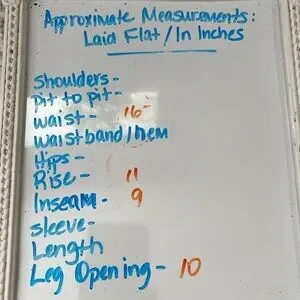 Approximate Measurements:
Laid Flat/In Inches
Shoulders -
Pit to pit -
Waist - 16
Waistband/hem
Hips -
Rise - 11
Inseam - 9
sleeve -
Length
Leg Opening - 10